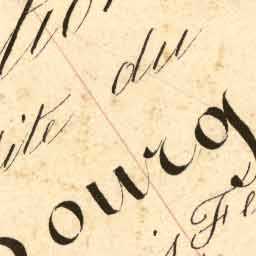 tion
ite du
ourg
s Fe